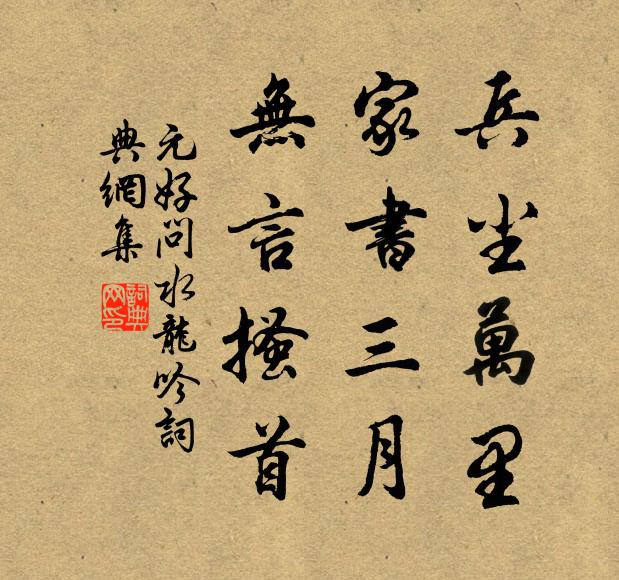 兵尘萬里
家書三月
無言搔首
元好问水龍吟詞
典網集
詞典
网印